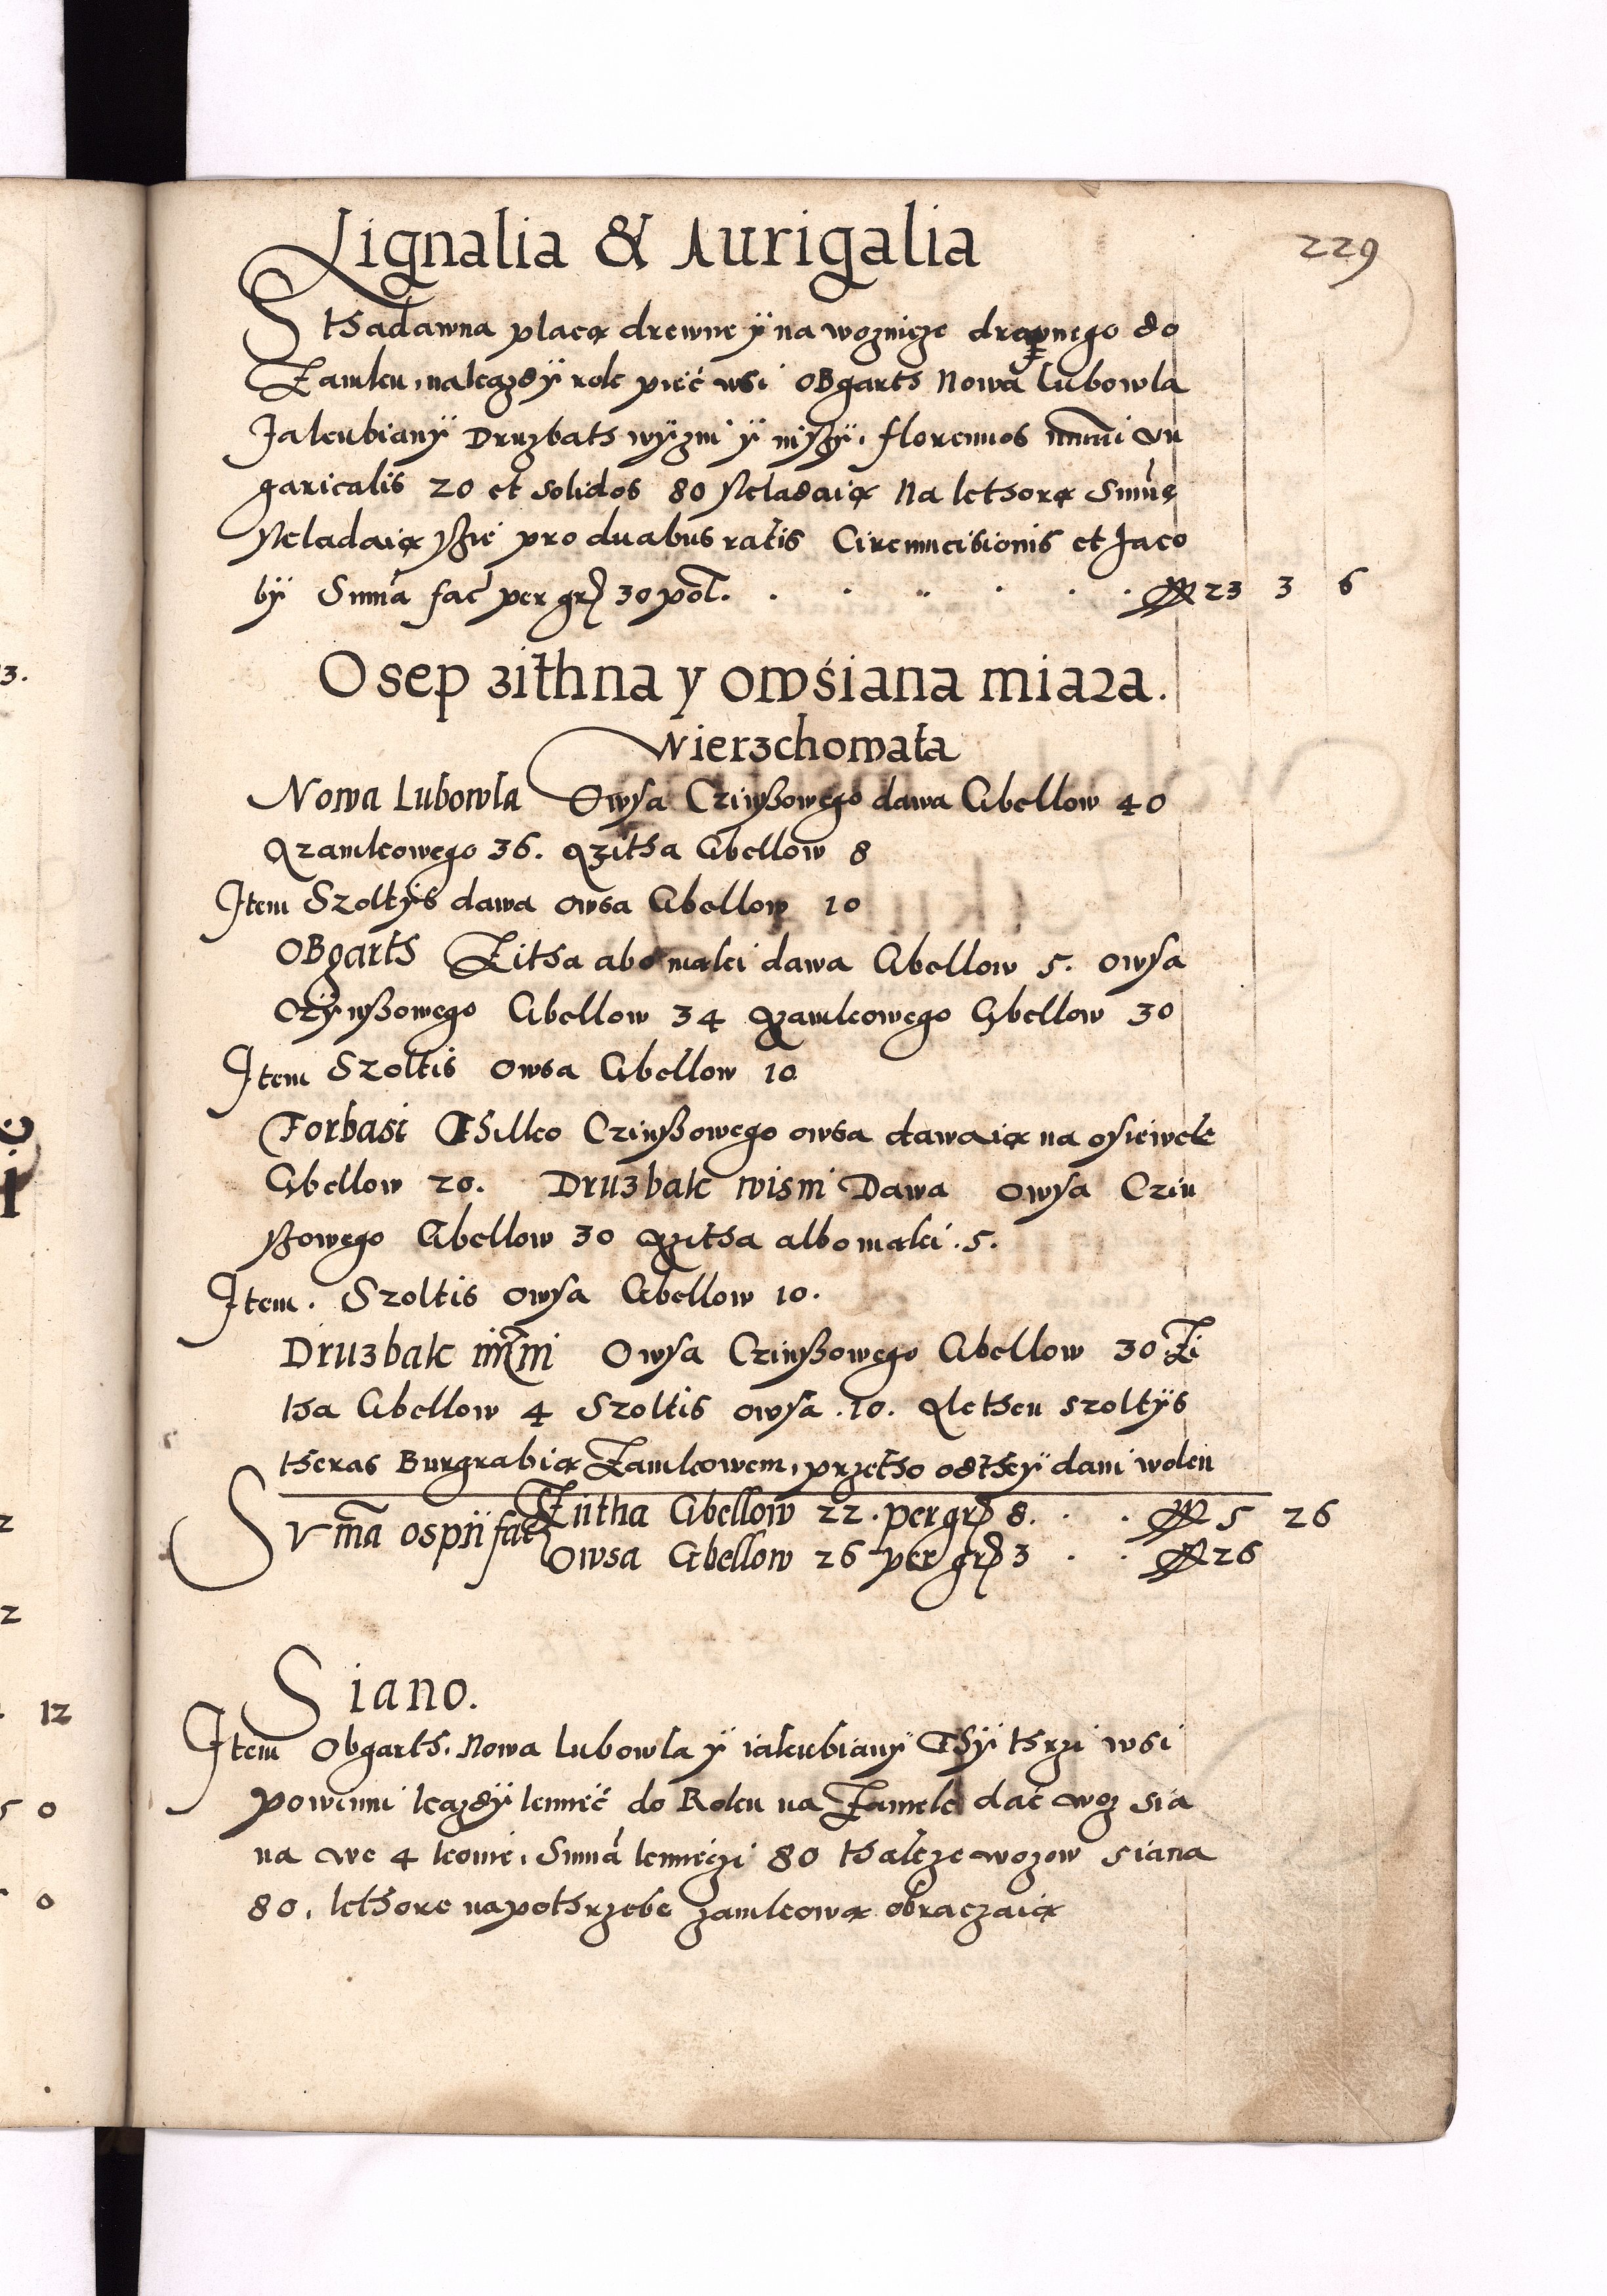 229
Lignalia & Aurigalia
Sthadawna placą drewne ÿ na woznicze drewnego do
Zamku, nakazdÿ rok pięć wsi OBgarth Nowa Lubowla
Jakubianÿ Druzbath wÿzni ÿ niszÿ, florennos nummi Vn
garicalis 20 et solidos 80 skladaią Na kthorą Summę
skladaią sſię pro duabus ratis Circumcisionis et Jaco
bÿ Summa fac per gr 30 pol. . . . . . . 23 3 6
Osep zithna y owśiana miara.
Wierzchowata
Nowa Lubowla Owsa Czinszowego dawa Gbellow 40
Zamkowego 36. Zitha Gbellow 8
Item Szoltÿs dawa owsa Gbellow 10
OBgarth Zitha abo mąki dawa Gbellow 5. owsa
Czÿnszowego Gbellow 34 Zamkowego Gbellow 30
Item Szoltis owsa Gbellow 10
Forbasi Thilko Czinszowego owsa dawaią na osiewek
Gbellow 20. Druzbak wisni Dawa owsa Czin
szowego Gbellow 30 Zitha albo mąki .5.
Item. Szoltis owsa Gbellow 10.
Druzbak nizni Owsa Czinszowego Gbellow 30 Zi
tha Gbellow 4 Szoltis owsa .10. Alethen szoltÿs
theras Burgrabią Zamkowem, przetho odtheÿ dani wolen
Summa ospii fac Zitha Gbellow 22. per gr 8. . . 5 26
Owsa Gbellow 26 per gr 3 . . 26
Siano.
Item Obgarth, Nowa Lubowla ÿ iakubianÿ Thÿ thrzi wsi
powinni kazdÿ kmieć do Roku na Zamek dać woz sia
na we 4 konie, Summa kmieczi 80 thakze wozow siana
80, kthore na pothrzebe zamkową obraczaią